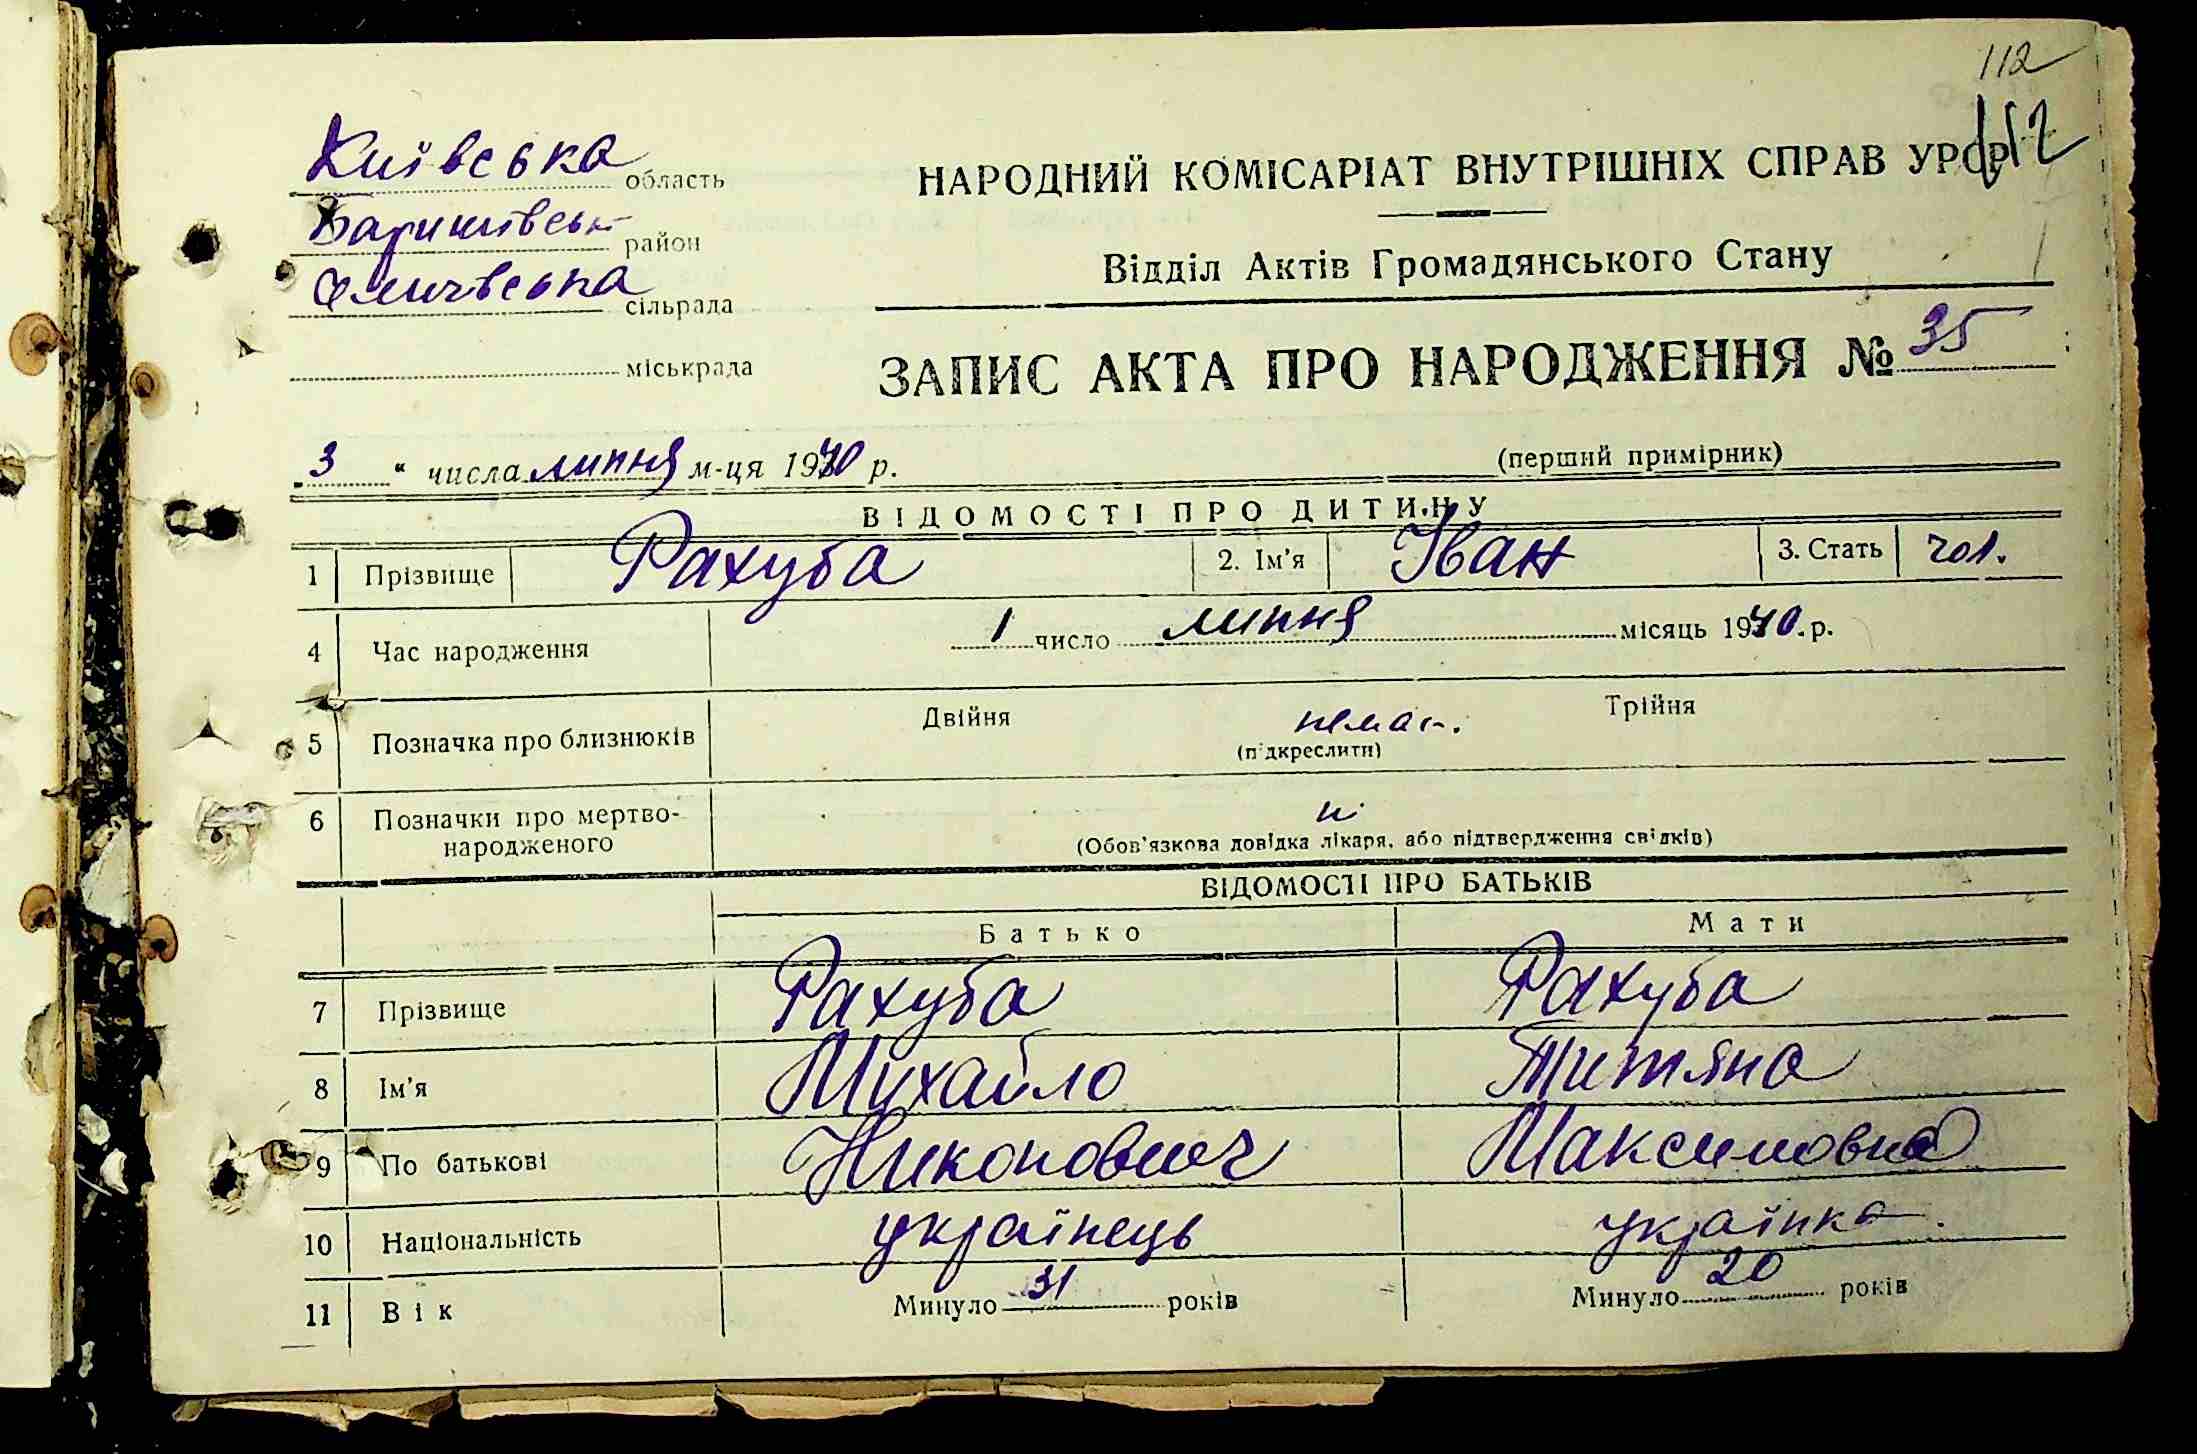 112
112
Київська область
НАРОДНИЙ КОМІСАРІАТ ВНУТРІШНІХ СПРАВ УРСР
Баришівськ район
Відділ Актів Громадянського Стану
сільрада
міськрада
ЗАПИС АКТА ПРО НАРОДЖЕННЯ № 35
3 " числа липня м-ця 1940 р.
(перший примірник)
ВІДОМОСТІ ПРО ДИТИНУ
1 Прізвище Рахуба 2. Ім'я Іван 3. Стать чол.
4 Час народження 1 число липня місяць 1940. р.
5 Позначка про близнюків Двійня немає. Трійня
(підкреслити)
6 Позначки про мертво-
народженого
ні
(Обов'язкова довідка лікаря, або підтвердження свідків)
ВІДОМОСТІ ПРО БАТЬКІВ
Батько Мати
7 Прізвище Рахуба Рахуба
8 Ім'я Михайло Титяна
9 По батькові Никонович Максимовна
10 Національність українець українка.
11 Вік Минуло 31 років Минуло 20 років